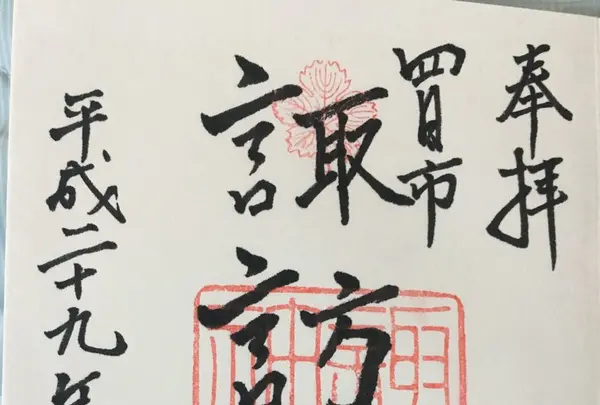 奉拝
四日市
諏訪
平成二十九年